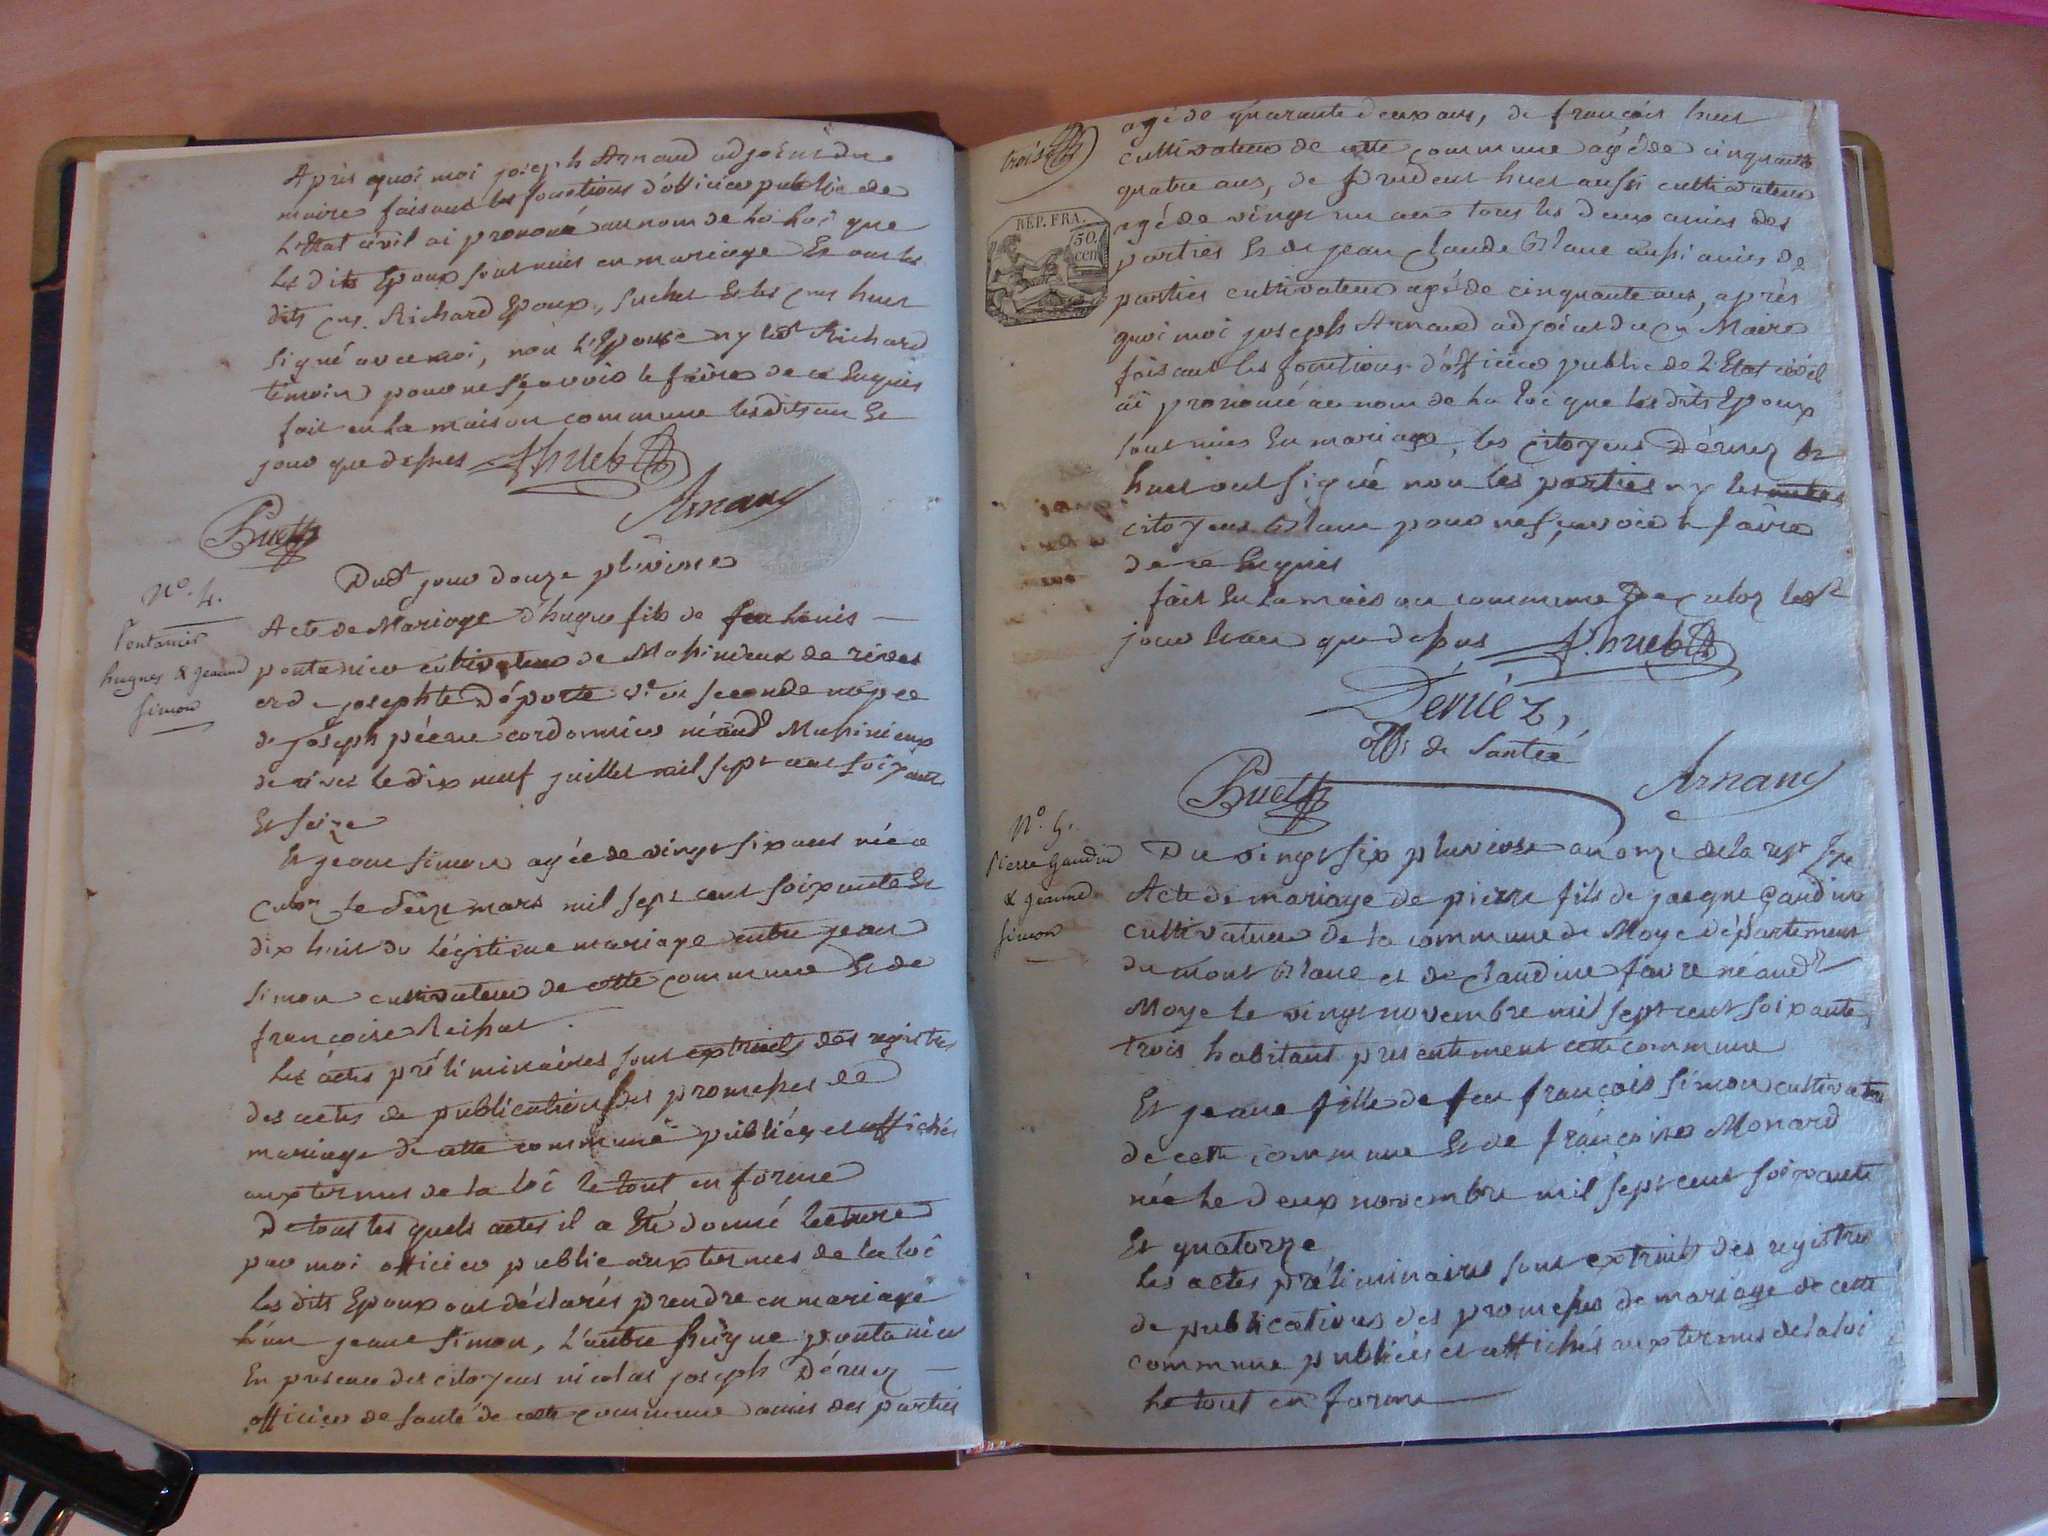 Après quoi moi joseph Arnaud adjoint du
maire faisant les fonctions d'officier public de
L'Etat civil ai prononcé au nom de La Loi que
les dits Epoux sont unis en mariage Et ont les
dits Richard Epoux, Et les huet
signé avec moi, non L'Epouse ny led Richard
témoin pour ne sçavoir le faire de ce Enquis
fait en La maison commune les dits an Et
jour que dessus Fhuet
Arnaud
Buet
Dud jour douze pluviose
No. 4.
Pontanier
hugues & jeanne
Simon
Acte de Mariage d'hugue fils de feu Louis
pontanier cultivateur de Massinieux de rives
et de josephte Déporte ve en seconde nopce
de joseph cordonnier né aud Massinieux
de rives le dix neuf juillet mil sept cent soixante
Et seize
Et jeane Simon agée de vingt six ans née a
Culoz le mars mil sept cent soixante Et
dix huit du légitime mariage entre jean
Simon cultivateur de cette commune Et de
françoise Reihat
Les actes préliminaires sont extraits des registres
des actes de publication des promesses de
mariage de cette commune publiés et affichés
aux termes de la loi le tout en forme
De tous les quels actes il a Eté donné lecture
par moi officier public aux termes de la loi
les dits Epoux ont déclarés prendre en mariage
L'un jeane Simon, L'autre hugue pontanier
En presence des citoyens nicolas joseph Déruez
officier de santé de cette commune amis des parties
trois
agé de quarante deux ans, de françois huet
cultivateur de cette commune agé de cinquante
quatre ans, de prudent huet aussi cultivateur
agé de vingt un ans tous les deux amis des
REP. FRA.
50.
cen
parties Et de jean Claude Blanc aussi amis de
parties cultivateur agé de cinquante ans, après
quoi moi joseph Arnaud adjoint du Maire
faisant les fonctions d'officier public de L'Etat civil
ai prononcé au nom de La Loi que les dits Epoux
sont unis En mariage, les citoyens Déruez Et
huet ont signé non les parties ny les autres
citoyens Blanc pour ne sçavoir le faire
de ce Enquis
fait En La maison commune de Culoz les
jour Et an que dessus F.huet
Deruéz,
offi de Santéé
Buet
Arnaud
No. 5.
Pierre Gaudin
& jeanne
Simon
Du vingt six pluviose an onze de la rep fse
Acte de mariage de pierre fils de jacque Gaudin
cultivateur de la commune de Moye département
du mont Blanc et de claudine favre né aud
Moye le vingt novembre mil sept cent soixante
trois habitant présentement cette commune
Et jeane fille de feu françois Simon cultivateur
de cette commune Et de françoise Monard
née le deux novembre mil sept cent soixante
Et quatorze
Les actes préliminaires sont extraits des registres
de publications des promesses de mariage de cette
commune publiés et affichés aux termes de la loi
Le tout en forme